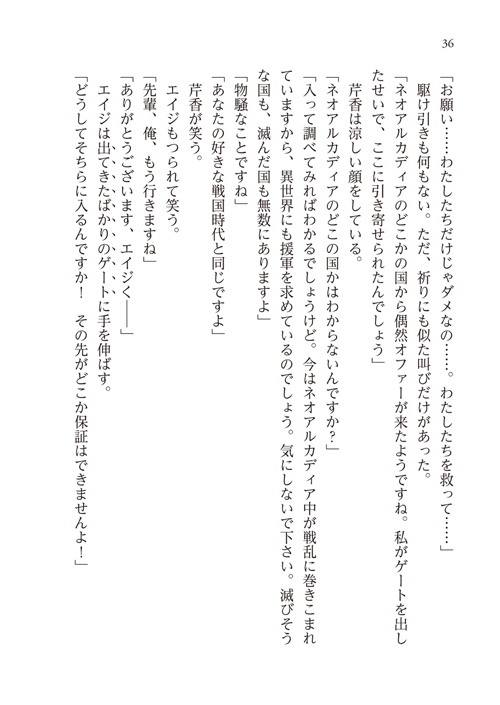 36
「お願い……わたしたちだけじゃダメなの……。わたしたちを救って……」
駆け引きも何もない。ただ、祈りにも似た叫びだけがあった。
「ネオアルカディアのどこかの国から偶然オファーが来たようですね。私がゲートを出し
たせいで、ここに引き寄せられたんでしょう」
芹香は涼しい顔をしている。
「ネオアルカディアのどこの国かはわからないんですか？」
「入って調べてみればわかるでしょうけど。今はネオアルカディア中が戦乱に巻きこまれ
ていますから、異世界にも援軍を求めているのでしょう。気にしないで下さい。滅びそう
な国も、滅んだ国も無数にありますよ」
「物騒なことですね」
「あなたの好きな戦国時代と同じですよ」
芹香が笑う。
エイジもつられて笑う。
「先輩、俺、もう行きますね」
「ありがとうございます、エイジく――」
エイジは出てきたばかりのゲートに手を伸ばす。
「どうしてそちらに入るんですか！　その先がどこか保証はできませんよ！」